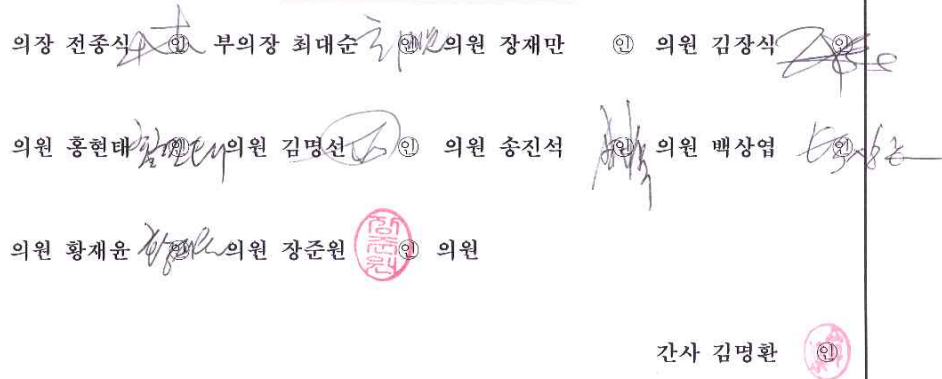 의장 전종식 ㊞ 부의장 최대순 ㊞ 의원 장재만 ㊞ 의원 김장식 ㊞
의원 홍현태 ㊞ 의원 김명선 ㊞ 의원 송진석 ㊞ 의원 백상엽 ㊞
의원 황재윤 ㊞ 의원 장준원 ㊞ 의원
간사 김명환 ㊞